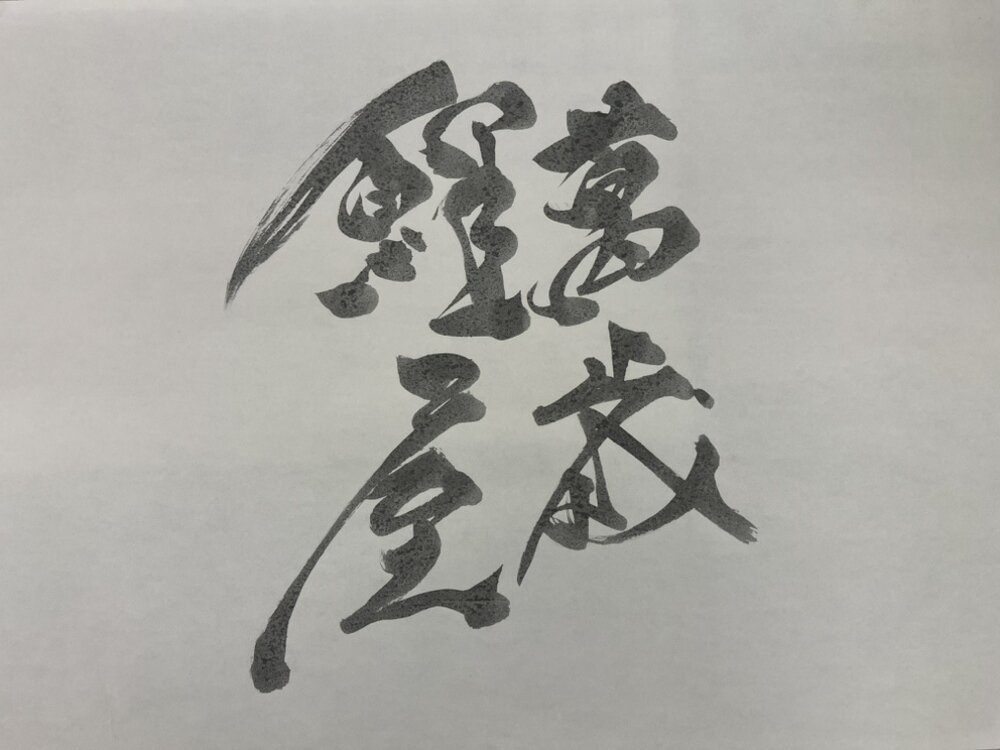 萬歳
鯉屋